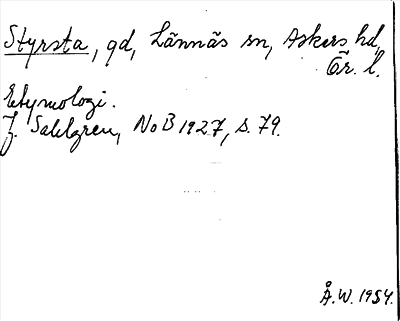 Styrsta, gd, Lännäs sn, Askers hd,
Ör. l.
Etymologi.
J. Sahlgren, NoB 1927, s. 79.
Å.W. 1954.